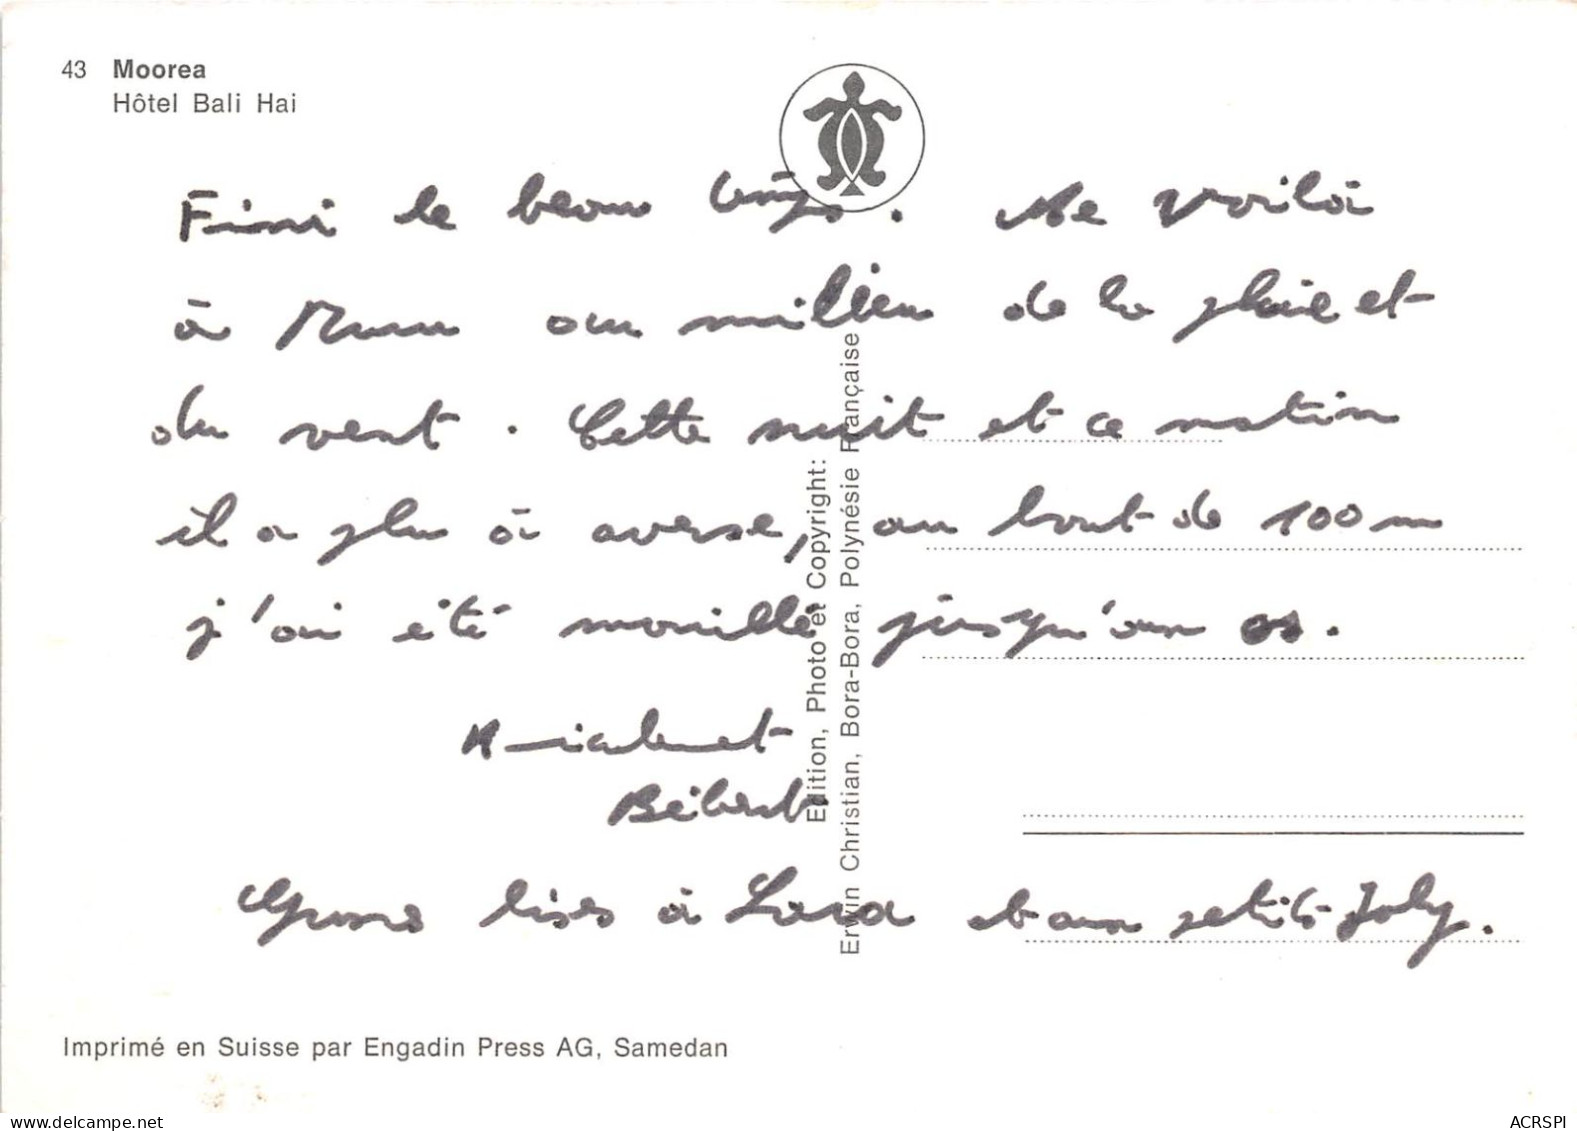 43 Moorea
Hôtel Bali Hai
Fini le beau temps. Me voilà
à au milieu de la pluie et
du vent. Cette nuit et ce matin
il a plu à averse, au bout de 100 m
j'ai été mouillé jusqu'aux os.
Amicalement
Bébert
bises à Lara et aux petits Joly.
Edition, Photo et Copyright:
Erwin Christian, Bora-Bora, Polynésie Française
Imprimé en Suisse par Engadin Press AG, Samedan
ACRSPI